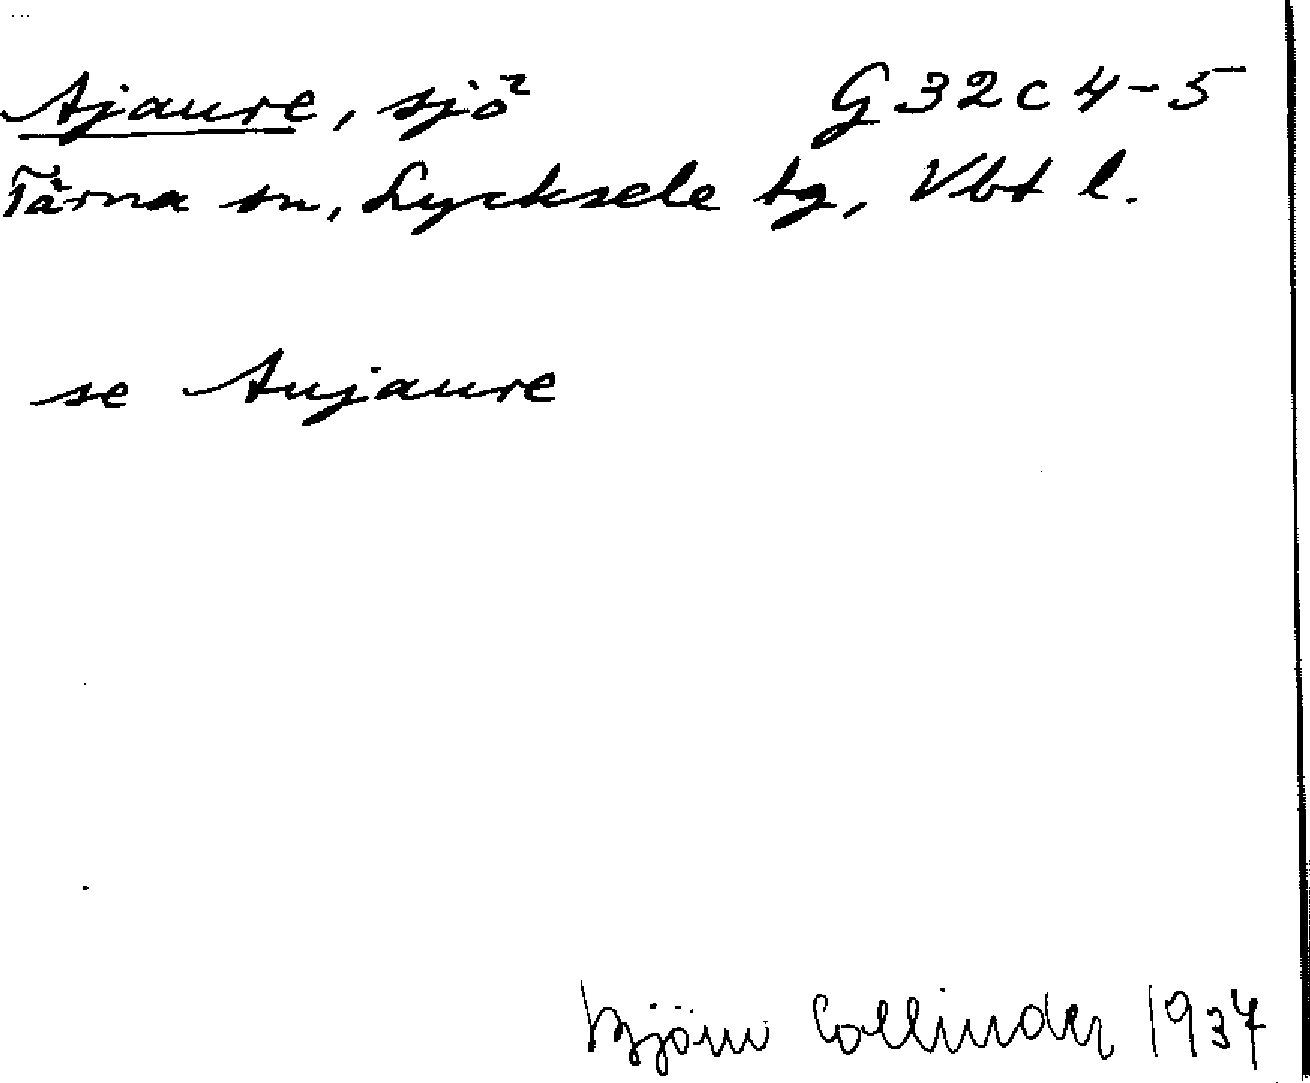 Ajaure, sjö G32c4-5
Tärna sn, Lycksele tg, Vbt l.
se Aujaure
Björn Collinder 1937